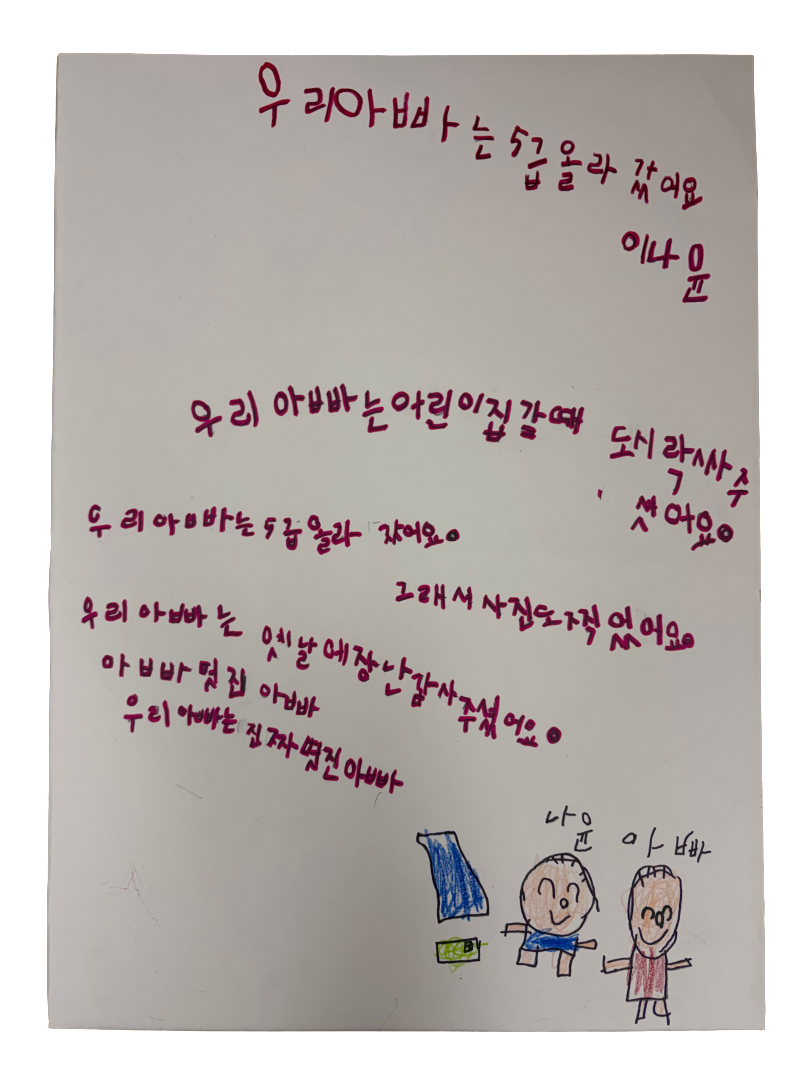 우리아빠는 5급올라 갔어요
이나윤
우리 아빠는어린이집갈때 도시락싸주
셨어요。
우리아빠는 5급올라 갔어요。
그래서사진도찍었어요。
우리 아빠는 옛날에장난감사주셨어요。
아빠멋진 아빠
우리 아빠는진짜멋진아빠
나윤 아빠